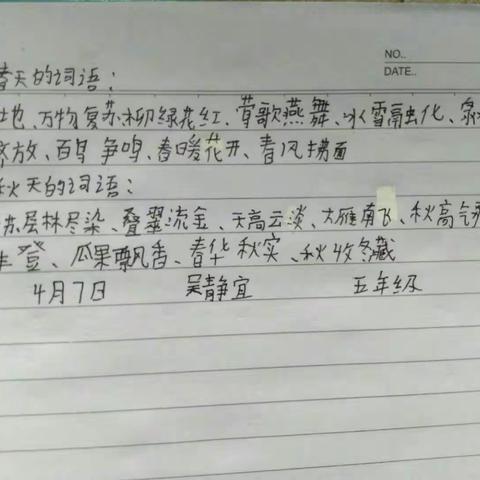 NO..
DATE..
春天的词语：
地、万物复苏、柳绿花红、莺歌燕舞、冰雪融化、泉
齐放、百鸟争鸣、春暖花开、春风拂面
秋天的词语：
苏层林尽染、叠翠流金、天高云淡、大雁南飞、秋高气爽
丰登、瓜果飘香、春华秋实、秋收冬藏
4月7日 吴静宜 五年级